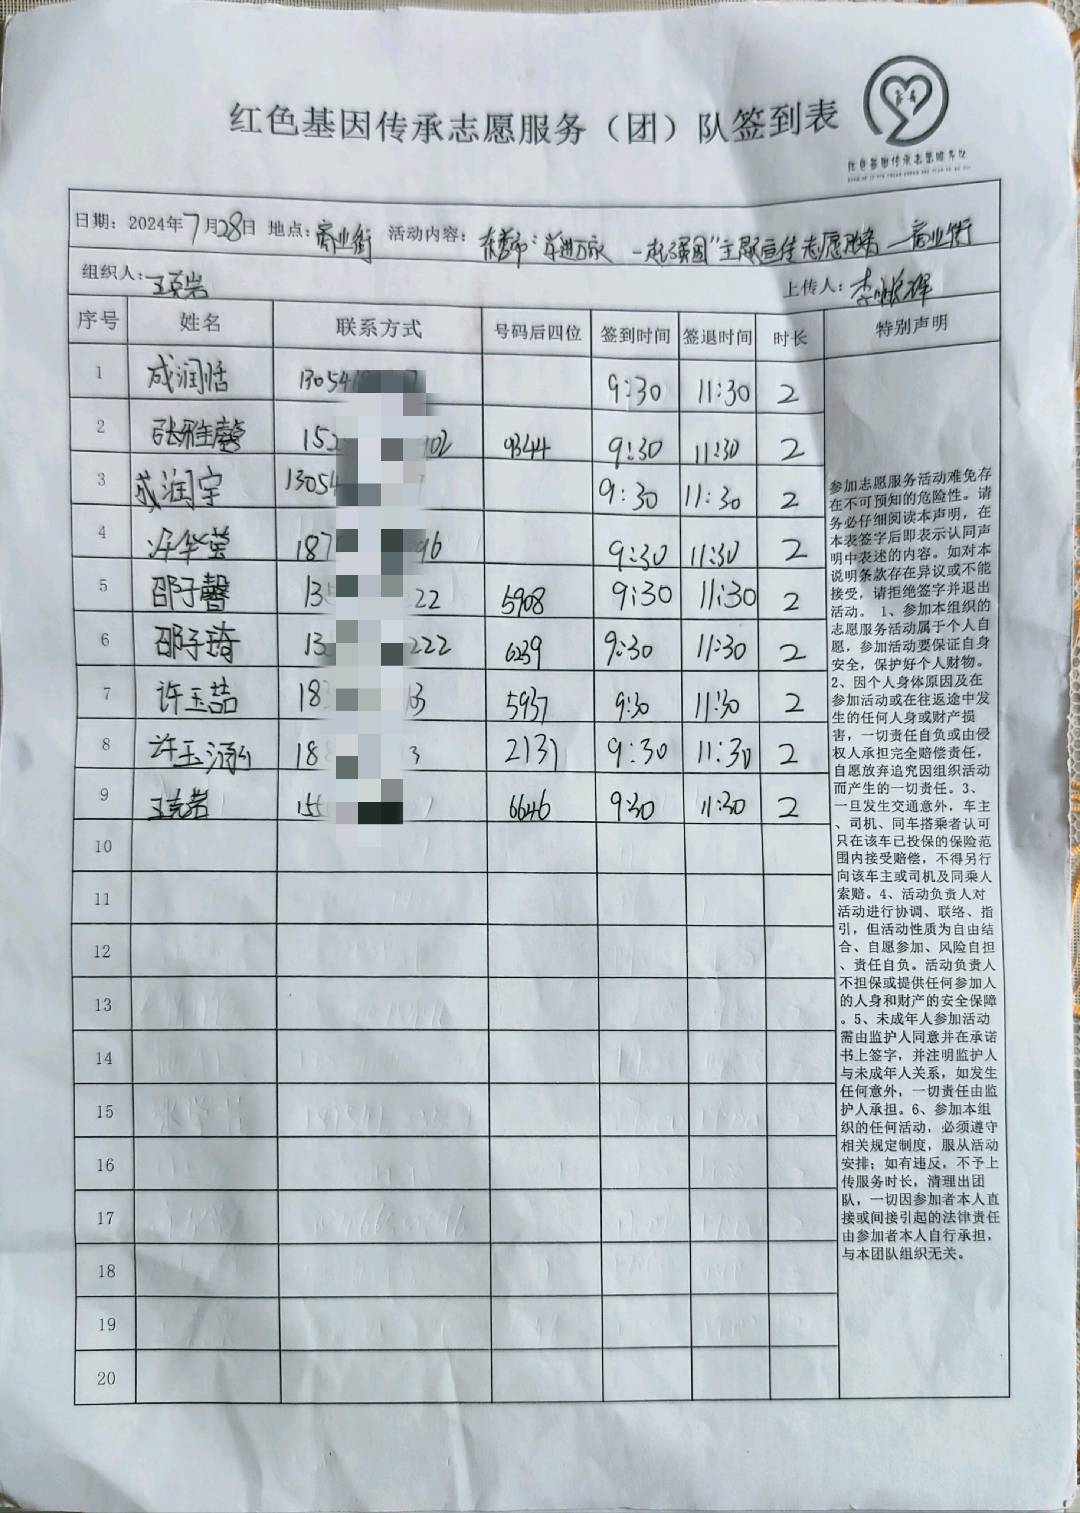 红色基因传承志愿服务（团）队签到表
红色基因传承志愿服务队
日期：2024年7月28日 地点：商业街 活动内容：东营市：走进万家 一起强国"主题宣传志愿服务—商业街
组织人：王克岩 上传人：李
序号 姓名 联系方式 号码后四位 签到时间 签退时间 时长 特别声明
1 成润恬 13054 9:30 11:30 2
2 张雅馨 15 02 9344 9:30 11:30 2
3 成润宇 13054 9:30 11:30 2
4 许华莹 187 96 9:30 11:30 2
5 邵子馨 13 22 5908 9:30 11:30 2
6 邵子琦 13 222 6239 9:30 11:30 2
7 许玉喆 18 3 5937 9:30 11:30 2
8 许玉涵 18 3 2131 9:30 11:30 2
9 王克岩 15 6646 9:30 11:30 2
10
11
12
13
14
15
16
17
18
19
20
参加志愿服务活动难免存
在不可预知的危险性。请
务必仔细阅读本声明，在
本表签字后即表示认同声
明中表述的内容。如对本
说明条款存在异议或不能
接受，请拒绝签字并退出
活动。 1、参加本组织的
志愿服务活动属于个人自
愿，参加活动要保证自身
安全，保护好个人财物。
2、因个人身体原因及在
参加活动或在往返途中发
生的任何人身或财产损
害，一切责任自负或由侵
权人承担完全赔偿责任，
自愿放弃追究因组织活动
而产生的一切责任。3、
一旦发生交通意外，车主
、司机、同车搭乘者认可
只在该车已投保的保险范
围内接受赔偿，不得另行
向该车主或司机及同乘人
索赔。4、活动负责人对
活动进行协调、联络、指
引，但活动性质为自由结
合、自愿参加、风险自担
、责任自负。活动负责人
不担保或提供任何参加人
的人身和财产的安全保障
。5、未成年人参加活动
需由监护人同意并在承诺
书上签字，并注明监护人
与未成年人关系，如发生
任何意外，一切责任由监
护人承担。6、参加本组
织的任何活动，必须遵守
相关规定制度，服从活动
安排；如有违反，不予上
传服务时长，清理出团
队，一切因参加者本人直
接或间接引起的法律责任
由参加者本人自行承担，
与本团队组织无关。